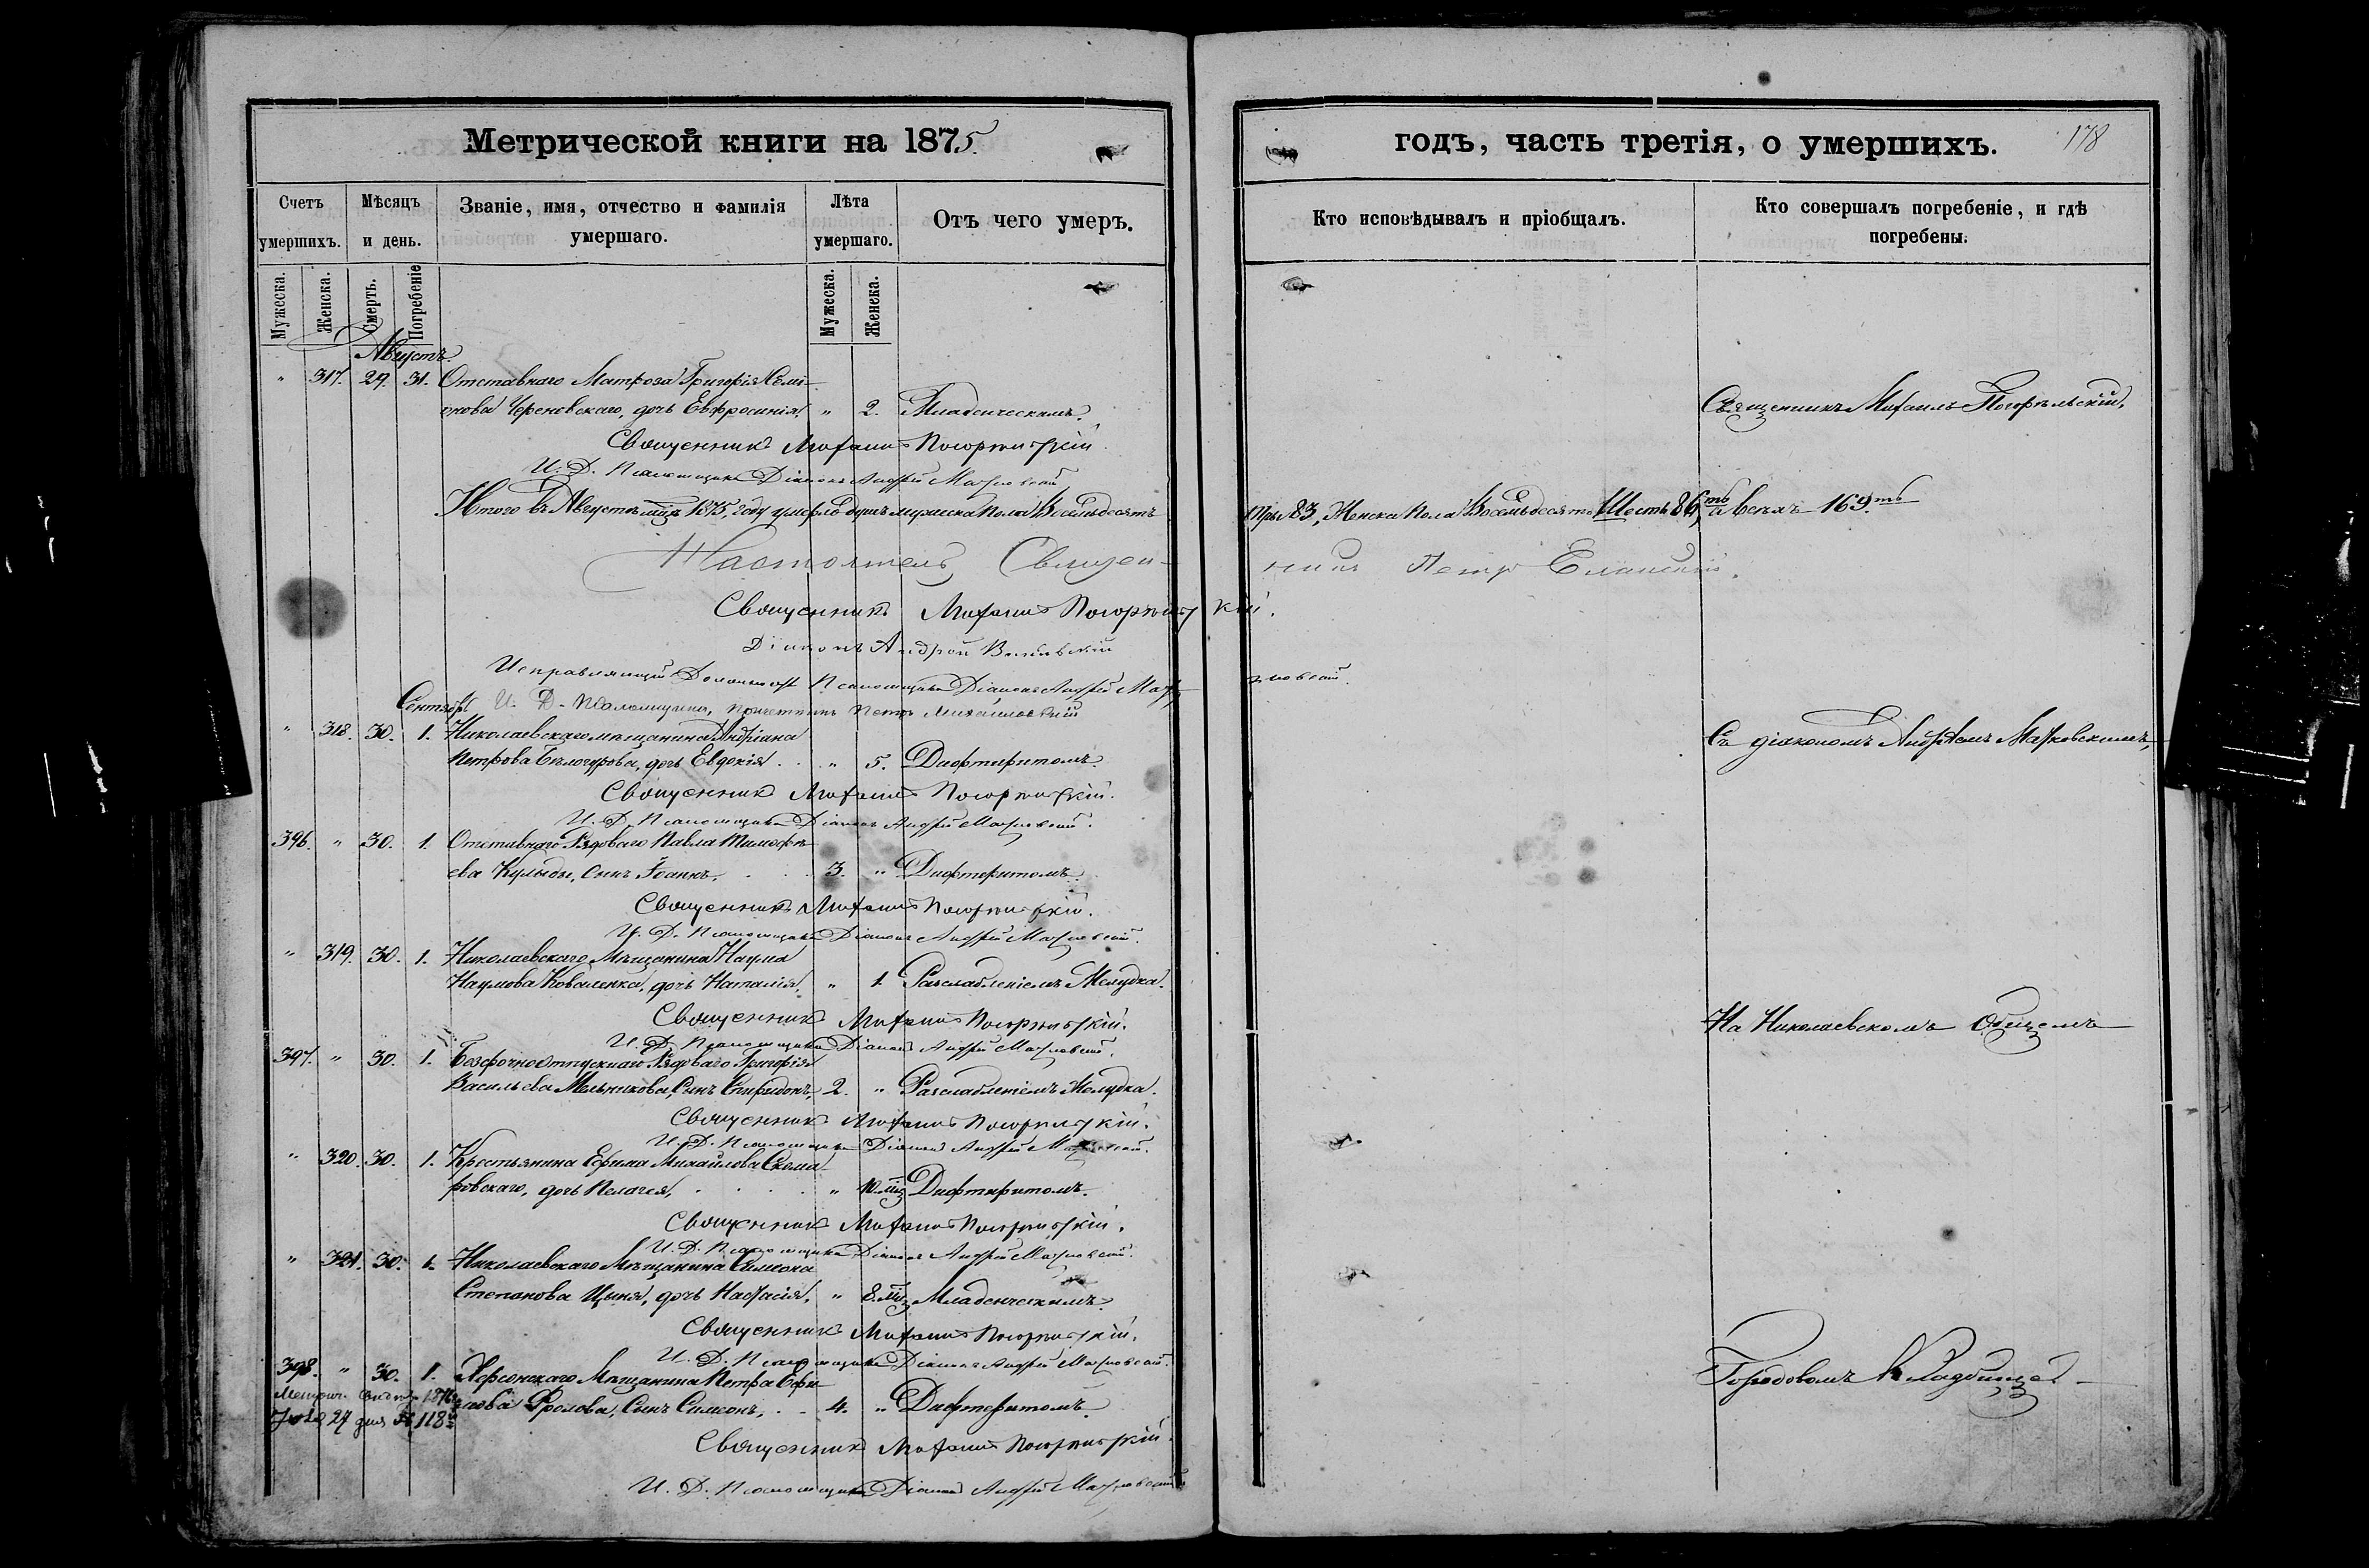 Метрической книги на 1875
Счетъ умершихъ.
Мѣсяцъ и день.
Званіе, имя, отчество и фамилія умершаго.
Лѣта умершаго.
Отъ чего умеръ.
Мужеска.
Женска.
Смерть.
Погребеніе
Мужеска.
Женска.
Августъ
" 317. 29. 31. Отставнаго Матроза Григорія Семі-
онова Череновскаго, дочь Евфросинія, " 2. Младенческимъ.
Священникъ Михаилъ Погорѣльскій.
И. Д. Псаломщика Діаконъ Андрей
Итого въ Августѣ мцѣ 1875, году умерло душъ мужеска пола Восемьдесятъ
Настоятель Священ-
Священникъ Михаилъ Погорѣльс
Діаконъ Андрей
Исправляющій Должность Псаломщика Діаконъ Андрей
Сентябрь И. Д. Псаломщика, причетникъ Петръ Михайловскій
" 318. 30. 1. Николаевскаго мѣщанина Андріана
Петрова Бѣлогурова, дочь Евдокія . . " 5. Дифтеритомъ.
Священникъ Михаилъ Погорѣльскій.
И. Д. Псаломщика Діаконъ Андрей
396. " 30. 1. Отставнаго Рядоваго Павла Тимофѣ-
ева Кулыды, Сынъ Іоаннъ. . . . 3. " Дифтеритомъ.
Священникъ Михаилъ Погорѣльскій.
И. Д. Псаломщика Діаконъ Андрей
" 319. 30. 1. Николаевскаго Мѣщанина Наума
Наумова Коваленка, дочь Наталія, " 1. Разслабленіемъ Желудка.
Священникъ Михаилъ Погорѣльскій.
И. Д. Псаломщика Діаконъ Андрей
397. " 30. 1. Безсрочноотпускнаго Рядоваго Григорія
Васильева Мельникова, Сынъ Спиридонъ, 2. " Разслабленіемъ Желудка.
Священникъ Михаилъ Погорѣльскій.
И. Д. Псаломщика Діаконъ Андрей
" 320. 30. 1. Крестьянина Ефима Михайлова Скома-
ровскаго, дочь Пелагея, . . . . " 10. мц Дифтеритомъ.
Священникъ Михаилъ Погорѣльскій.
И. Д. Псаломщика Діаконъ Андрей
" 321. 30. 1. Николаевскаго Мѣщанина Симеона
Степанова Цыня, дочь Настасія, " 8. мц Младенческимъ.
Священникъ Михаилъ Погорѣльскій.
И. Д. Псаломщика Діаконъ Андрей
398. " 30. 1. Херсонскаго Мѣщанина Петра Ефи-
мова Фролова, Сынъ Симеонъ, . . 4. " Дифтеритомъ.
27 дня № 118
Священникъ Михаилъ Погорѣльскій.
И. Д. Псаломщика Діаконъ Андрей
годъ, часть третія, о умершихъ. 178
Кто исповѣдывалъ и пріобщалъ.
Кто совершалъ погребеніе, и гдѣ погребены.
Священникъ Михаилъ Погорѣльскій,
три 83, Женска пола Восемьдесятъ Шесть 86, а всѣхъ 169.ть
никъ Петръ
кій.
Съ діакономъ Андреемъ
На Николаевскомъ Общемъ
Городовомъ Кладбищѣ